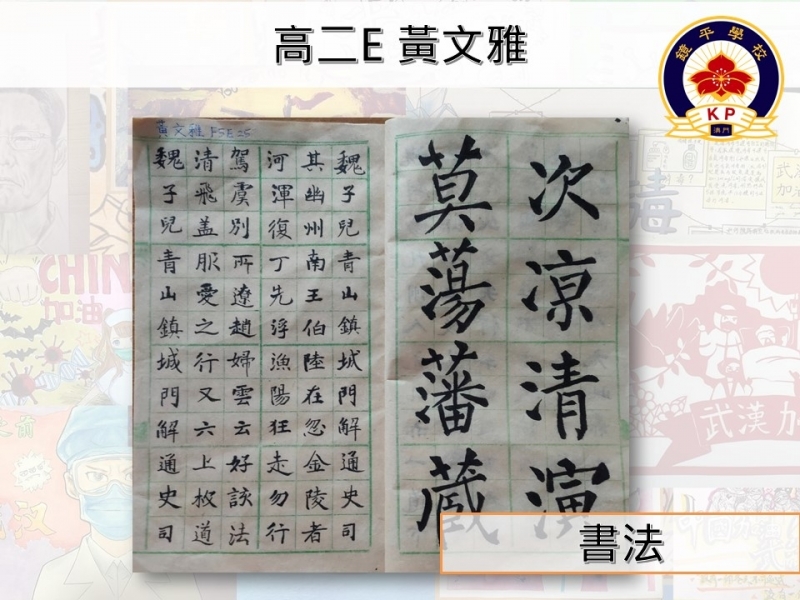 高二E 黃文雅
鏡平學校
KP
澳門
黃文雅 F5E 25
次凉清演
莫蕩藩蔵
魏子兒青山鎮城門解通史司
其幽州南王伯陸在忽金陵者
河渾復丁先浮漁陽狂走勿行
駕虞別所遼趙婦雲云好談法
清飛蓋服愛之行又六上枚道
魏子兒青山鎮城門解通史司
書法
CHIN
加油
毒
武漢加